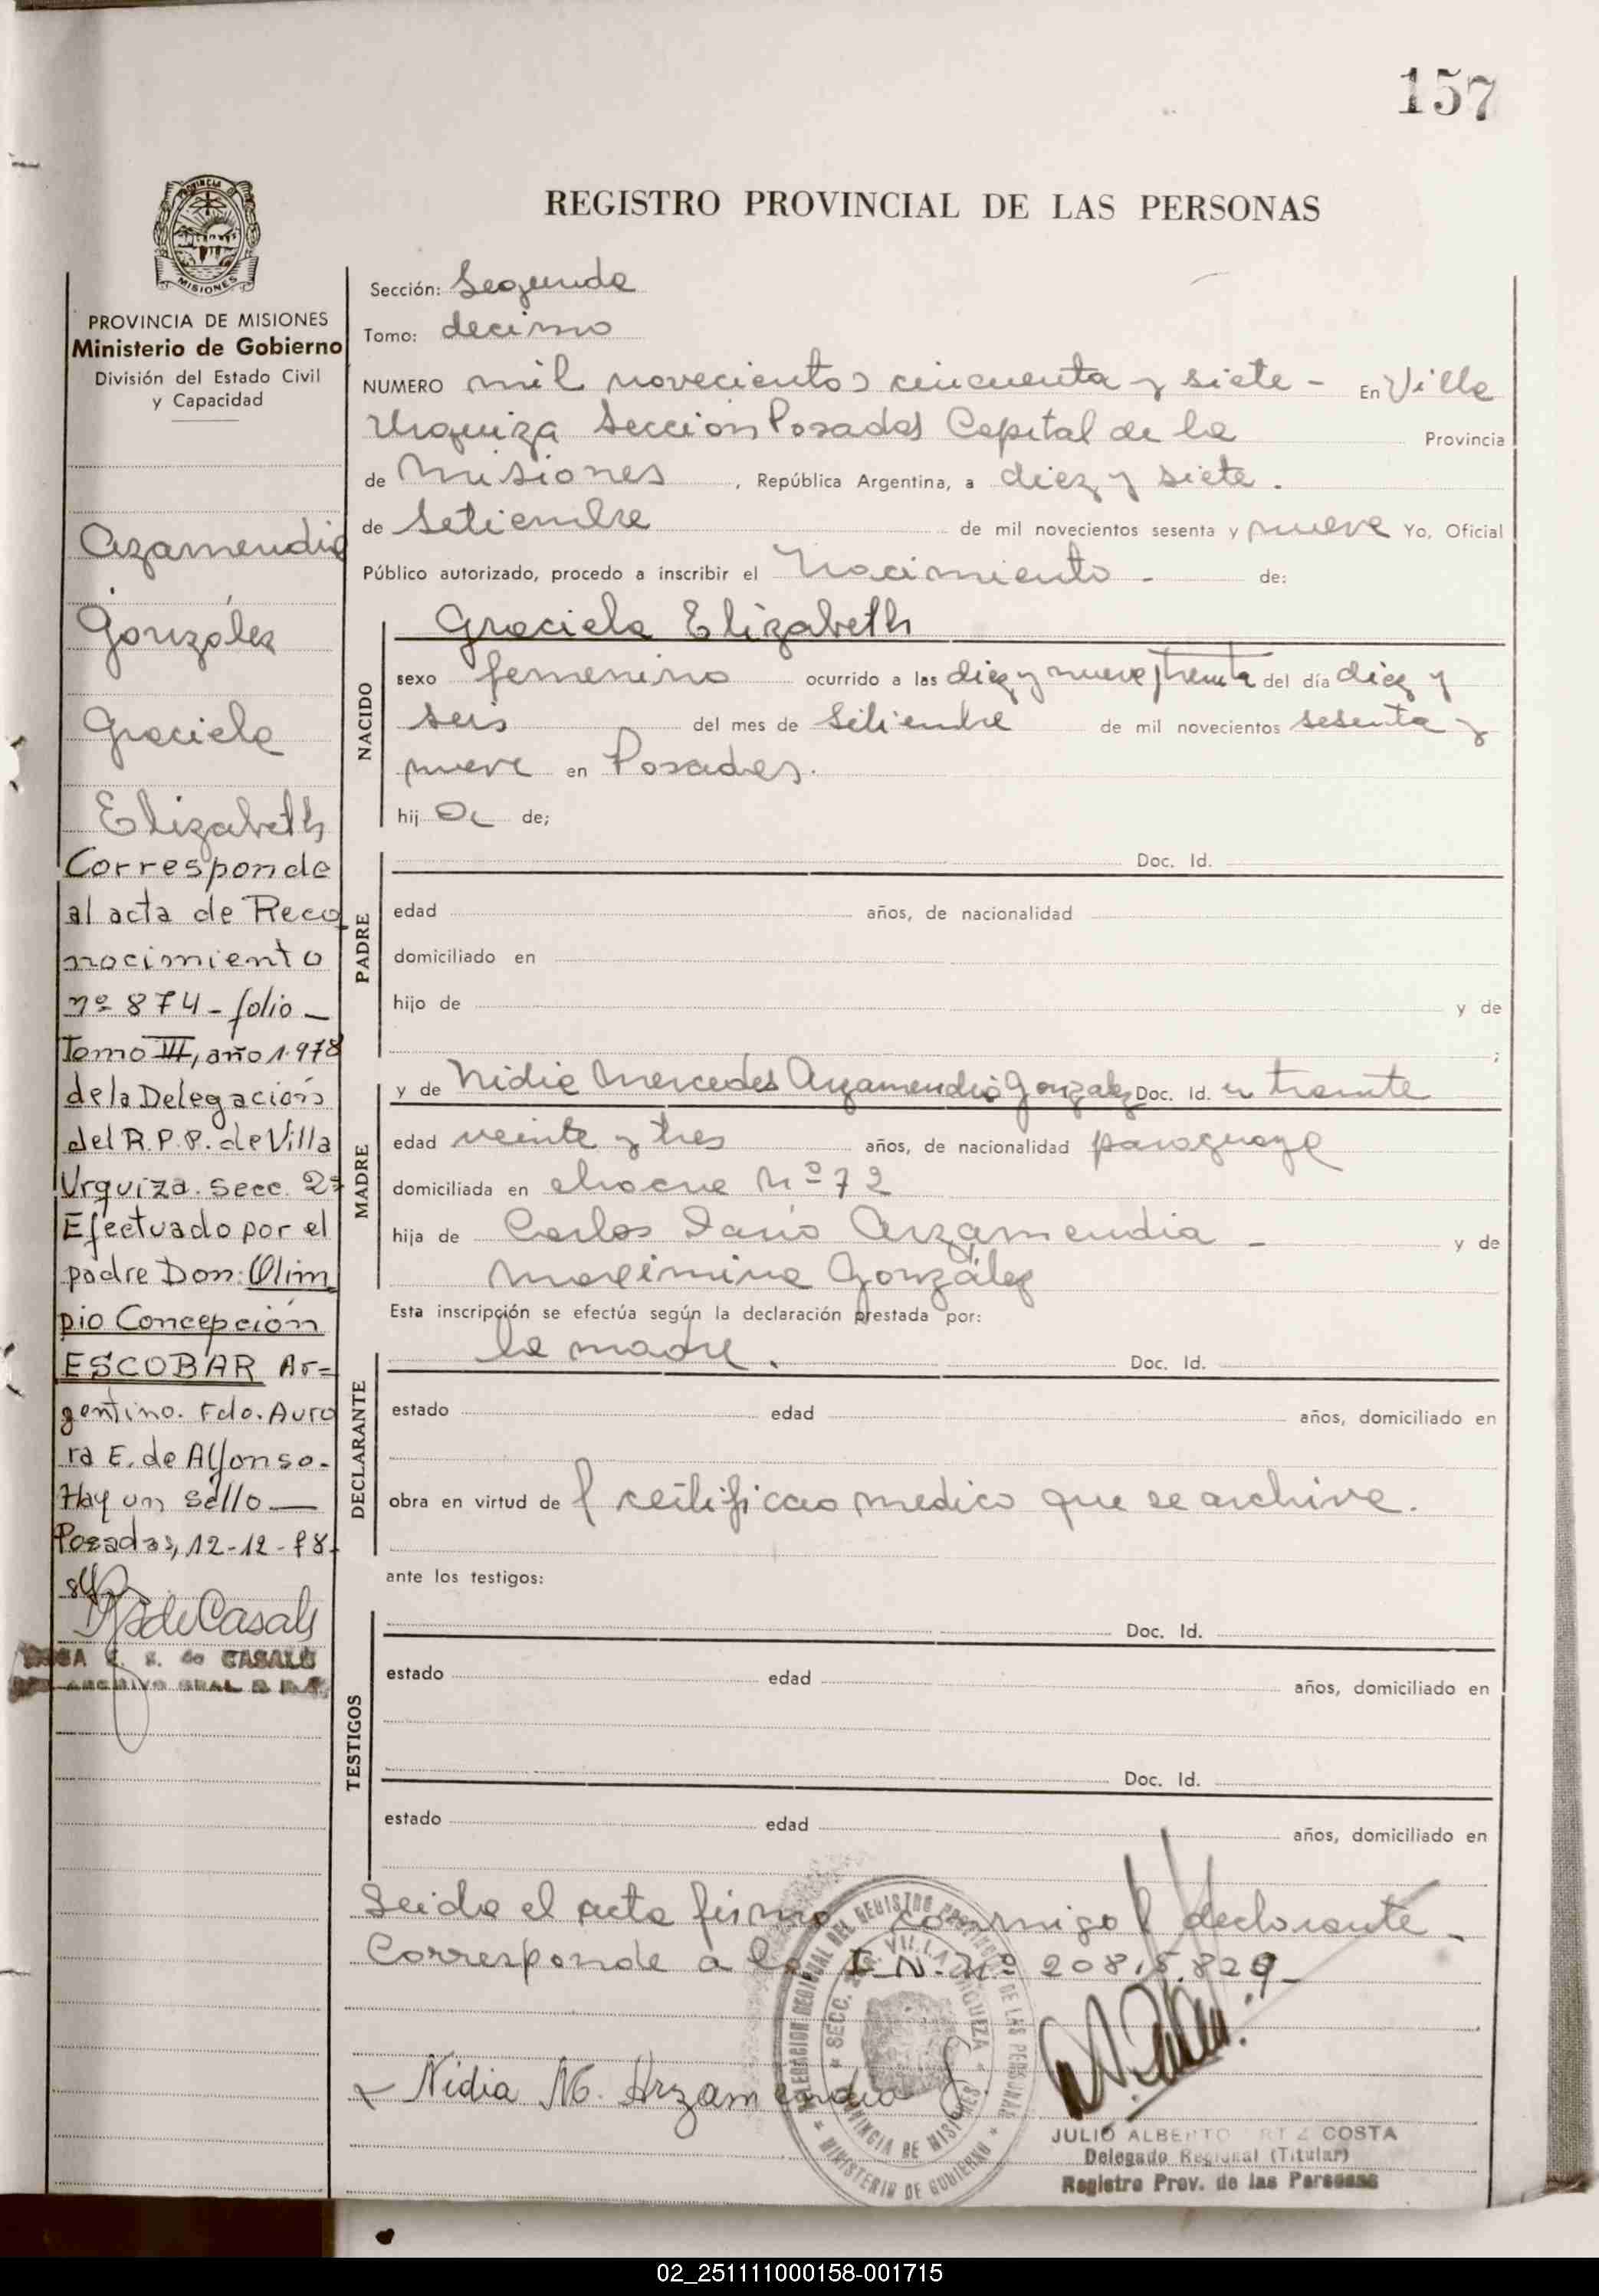 157
REGISTRO PROVINCIAL DE LAS PERSONAS
PROVINCIA DE MISIONES
Ministerio de Gobierno
División del Estado Civil
y Capacidad
Azamendia
González
Graciela
Elizabeth
Corresponde
al acta de Reco
nocimiento
nº 874 - folio -
Tomo III, año 1.978
de la Delegación
del R.P.P. de Villa
Urquiza. Secc. 2ª
Efectuado por el
padre Don: Olim
pio Concepción
ESCOBAR Ar=
gentino. Fdo. Auro
ra E. de Alfonso.
Hay un sello —
Posadas, 12-12-78.
de CASALS
Sección: Segunda
Tomo: decimo
NUMERO mil novecientos cincuenta y siete - En Villa
Urquiza Sección Posadas Capital de la Provincia
de Misiones , República Argentina, a diez y siete.
de Setiembre de mil novecientos sesenta y nueve Yo, Oficial
Público autorizado, procedo a inscribir el Nacimiento - de:
NACIDO
Graciela Elizabeth
sexo femenino ocurrido a las diez y nueve y treinta del día diez y
seis del mes de Setiembre de mil novecientos sesenta y
nueve en Posadas.
hij a de;
PADRE
Doc. Id.
edad años, de nacionalidad
domiciliado en
hijo de y de
;
MADRE
y de Nidia Mercedes Arzamendia Gonzalez Doc. Id. en tramite
edad veinte y tres años, de nacionalidad paraguaya
domiciliada en chacra Nº 72
hija de Carlos Dario Arzamendia - y de
Maximina González
Esta inscripción se efectúa según la declaración prestada por:
DECLARANTE
la madre. Doc. Id.
estado edad años, domiciliado en
obra en virtud de certificado medico que se archiva.
ante los testigos:
TESTIGOS
Doc. Id.
estado edad años, domiciliado en
Doc. Id.
estado edad años, domiciliado en
Leida el acta firma conmigo l declarante -
Corresponde a la L.N. Nº 208.5.829_
Nidia M. Arzamendia G
DELEGACION REGIONAL DEL REGISTRO PROVINCIAL DE LAS PERSONAS
SECC. 2da. VILLA URQUIZA
PROVINCIA DE MISIONES
MINISTERIO DE GOBIERNO
JULIO ALBERTO COSTA
Delegado Regional (Titular)
Registro Prov. de las Personas
02_251111000158-001715